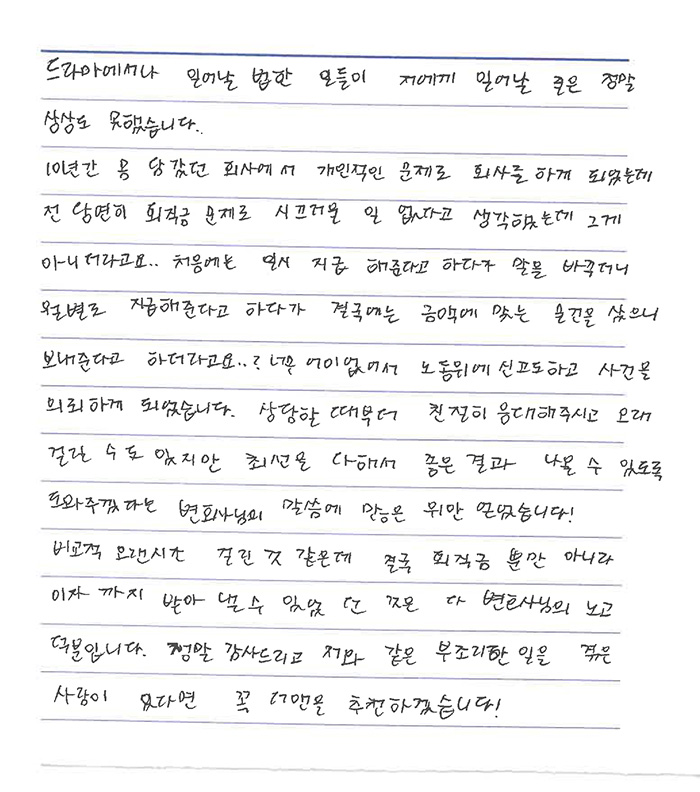 드라마에서나 일어날 법한 일들이 저에게 일어날 줄은 정말
상상도 못했습니다..
10년간 몸 담갔던 회사에서 개인적인 문제로 퇴사를 하게 되었는데
전 당연히 퇴직금 문제로 시끄러울 일 없다고 생각했는데 그게
아니더라고요.. 처음에는 일시 지급 해준다고 하다가 말을 바꾸더니
월별로 지급해준다고 하다가 결국에는 금액에 맞는 물건을 샀으니
보내준다고 하더라고요..? 너무 어이없어서 노동위에 신고도하고 사건을
의뢰하게 되었습니다. 상담할 때부터 친절히 응대해주시고 오래
걸릴 수도 있지만 최선을 다해서 좋은 결과 나올 수 있도록
도와주겠다는 변호사님의 말씀에 많은 위안 얻었습니다!
비교적 오랜시간 걸린 것 같은데 결국 퇴직금 뿐만 아니라
이자 까지 받아 낼 수 있었 던 것은 다 변호사님의 노고
덕분입니다. 정말 감사드리고 저와 같은 부조리한 일을 겪은
사람이 있다면 꼭 더앤을 추천하겠습니다!